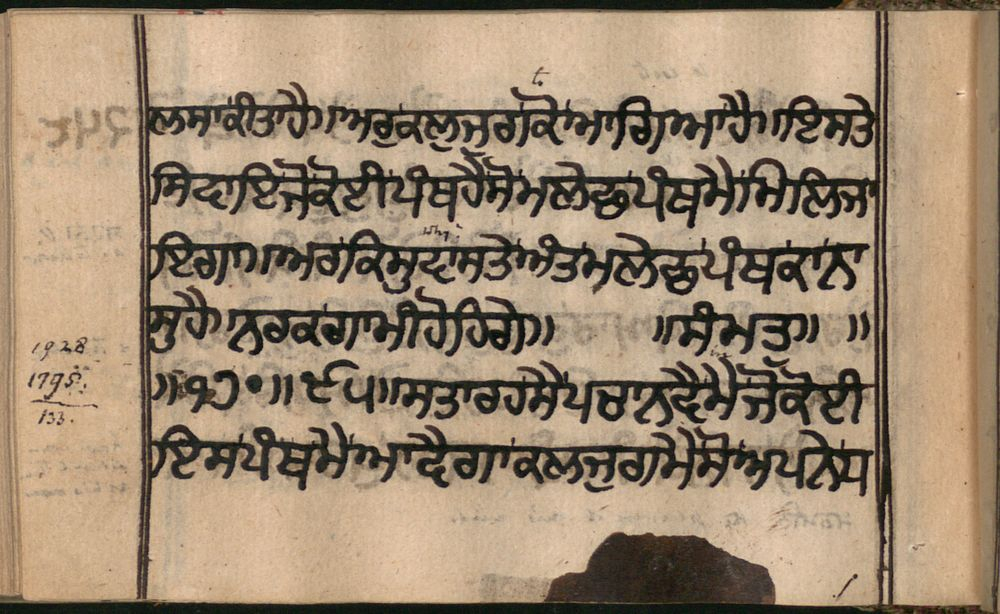 ਲਸਾਕੀਤਾਹੈ॥ਅਰੁਕਲੁਜਗਕੋਆਗਿਆਹੈ॥ਇਸਤੇ
ਸਿਦਾਇਜੋਕੋਈਪੰਥਹੈਸੋਮਲੇਛਪੰਥਮੈਮਿਲਿਜਾ
ਇਗਾ॥ਅਰਕਿਸੁਦਾਸਤੇਅੰਤਮਲੇਛਪੰਥਕਾਨਾ
ਸੁਹੈ॥ਨਰਕਗਾਮੀਹੋਹਿਗੇ॥ ॥ਸੰਮਤ॥ ॥
1928
1795
133.
॥੧੭੦੦॥੯੫॥ਸਤਾਰਹਸੈਪਚਾਨਵੈਮੈਜੋਕੋਈ
ਇਸਪੰਥਮੈਆਵੈਗਾਕਲਜੁਗਮੈਸੋਅਪਨੇਧ